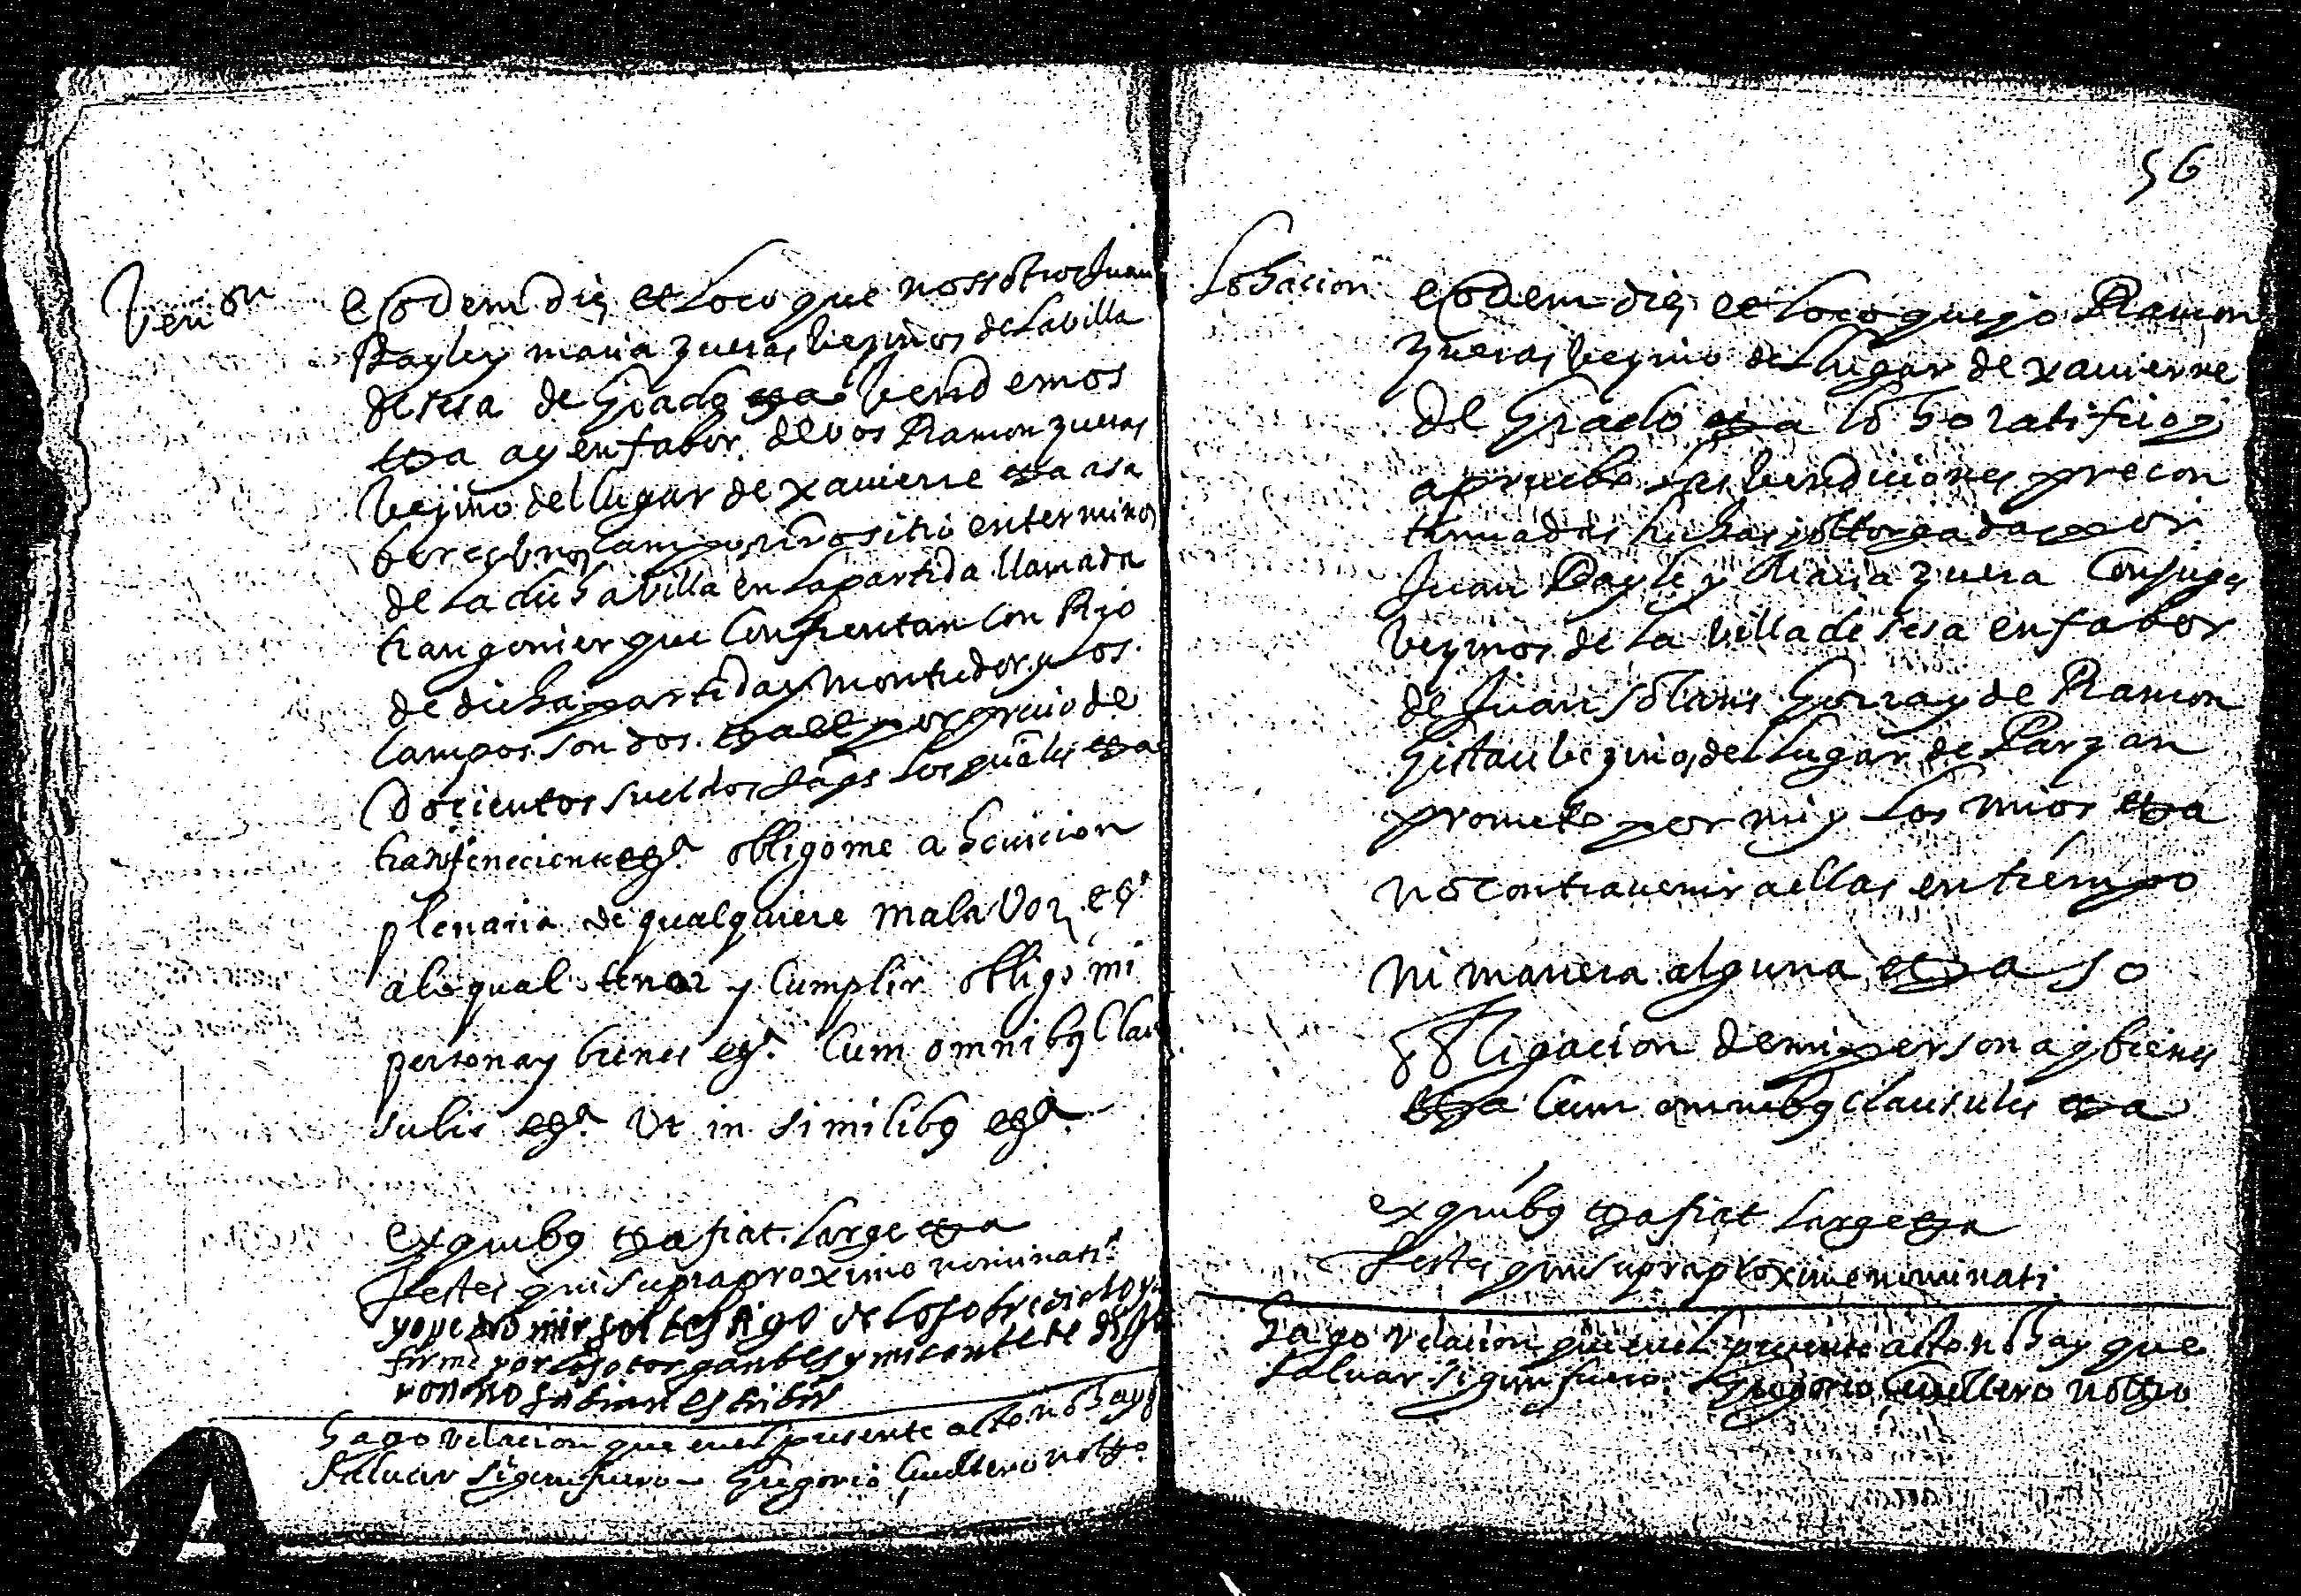 Ven.on
eodem die et loco que nossotros Juan
Bayle y maria zueras vezinos de la villa
de sesa de Grado etta vendemos
etta a y en fabor de vos Ramon zueras
vezino del lugar de xavierre etta a sa
ber es unos campos nros sitios en terminos
de la dicha villa en la partida llamada
que confrentan con Rio
de dicha partida y montiedor y los
campos son dos etta et por precio de
Docientos sueldos jaqs los quales etta
transfenecientes etª obligome a hevicion
plenaria de qualquiere mala voz etª
a lo qual tener y cumplir obligo mi
persona y bienes etª Cum omnibq clau
sulis etª Ut in similibq etª
ex quibq etta fiat large etta
Testes qui supra proximo nominati
yo pedro mir soi testigo de lo sobredicto y
firmo por los otorgantes y mi conteste
ron no sabian escribir
Hago relacion que en el presente acto no hay q
saluar sigun fuero Gregorio Cuellero notto
56
Lohacion
eodem die et loco que yo Ramon
zueras vezino del lugar de xavierre
de Grado etta loho ratifico y
apruebo las vendiciones precon
tinuadas hechas y ottorgadas por
Juan Bayle y Maria zuera Conjuges
vezinos de la villa de sesa en fabor
de Juan solans Gorra y de Ramon
Gistau vezinos del lugar de Parzan
prometo por mi y los mios etta
no contravenir a ellas en tiempo
ni manera alguna etta so
obligacion de mi persona y bienes
etta Cum omnibq clausulis etta
ex quibq etta fiat large etta
Testes qui supra proxime nominati
Hago relacion que en el presente acto no hay que
saluar sigun fuero Gregorio Cuellero notto